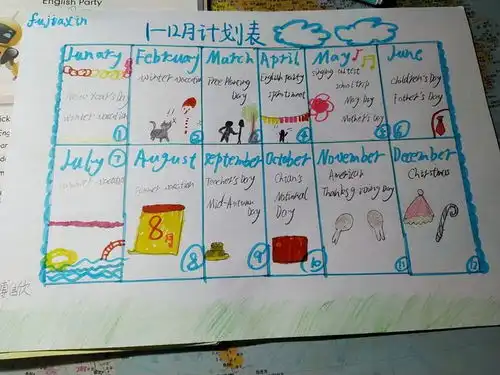 English Party
fujiaxin
1-12月计划表
Junary
New Year's Day
winter vacation
1
February
winter vacation
2
March
Tree Planting
Day
3
April
English party
sports meet
4
May
singing
school trip
May Day
Mother's Day
5
June
children's Day
Father's Day
6
July 7
summer vacation
August
summer vacation
8月
8
September
Teacher's Day
Mid-Autumn
Day
9
October
National
Day
10
November
American
Thanksgiving Day
11
December
Christmas
12